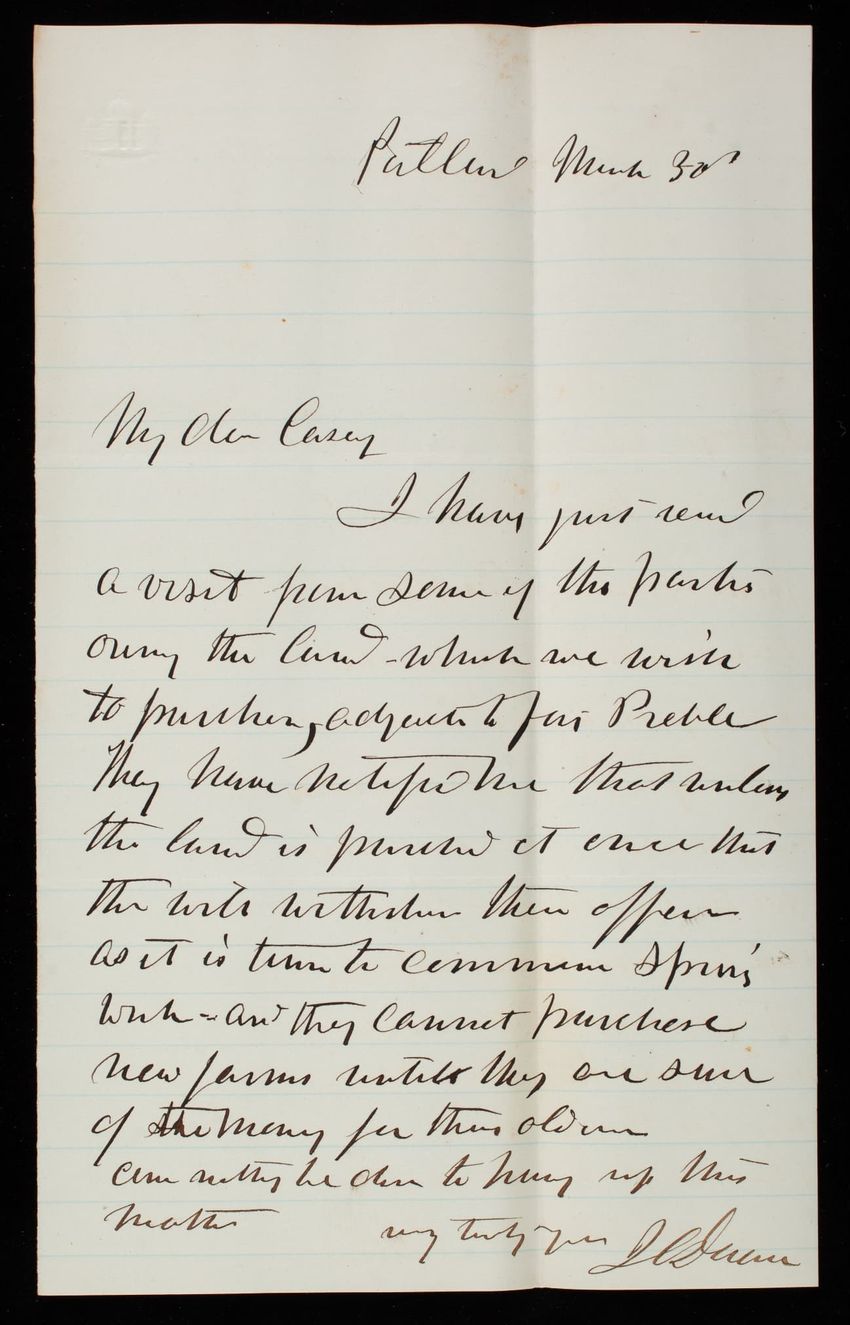 Portland March 30th
My dear Casey
I have just recd
a visit from some of the parties
owning the land - which we wish
to purchase, adjacent to fort Preble
They have notified me that unless
the land is purchased at once that
they will withdraw their offers
as it is time to commence Spring
work - and they cannot purchase
new farms until they are sure
of the money for their old ones
can nothing be done to hurry up this
matter
very truly yours J C Duane